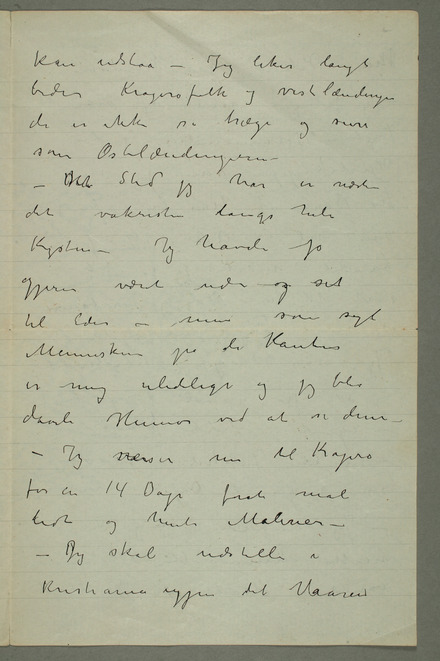 kan udstaa – Jeg liker langt
bedre Kragerøfolk og vestlændinger
de er ikke så træge og sure
som Østlændingerne –
– Det Sted jeg har er næsten
det vakreste langs hele
Kysten – Jeg havde jo
gjerne været nede og set
til Eder – men som sagt
Menneskene på de Kanter
er mig ulidelige og jeg blir
daarlig Humør ved at se dem –
– Jeg reiser nu til Kragerø
for en 14 Dage for at male
lidt og hente Malerier –
– Jeg skal udstille i
Kristiania igjen det Vaaren